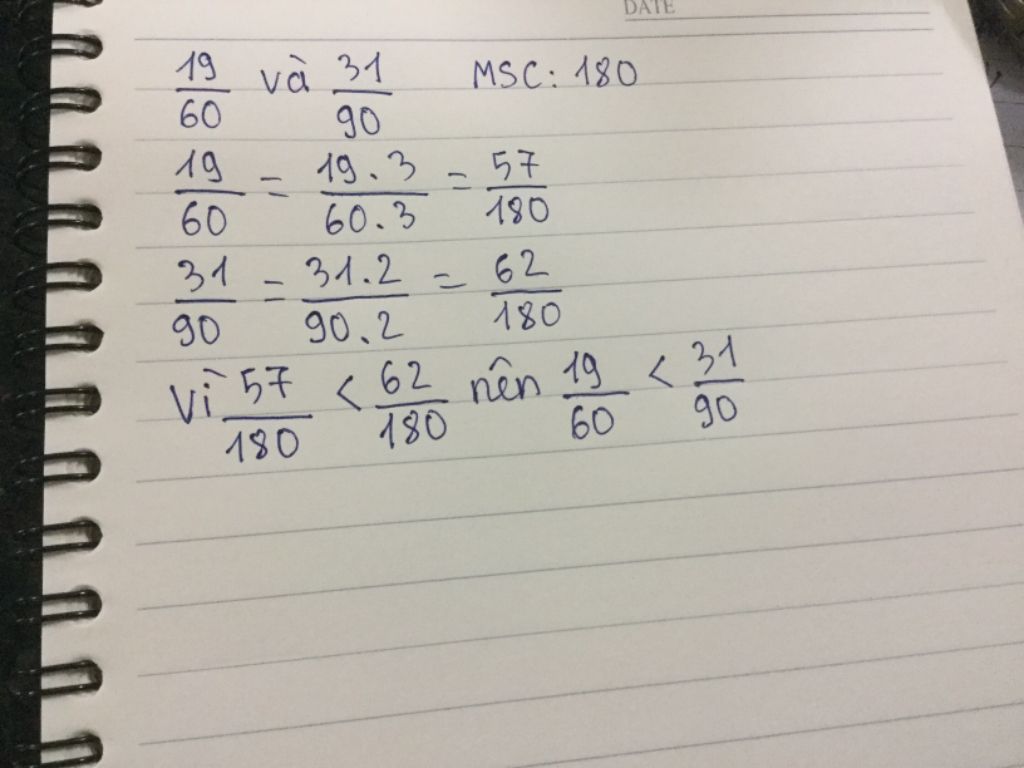 DATE
19/60 và 31/90 MSC: 180
19/60 = 19.3/60.3 = 57/180
31/90 = 31.2/90.2 = 62/180
Vì 57/180 < 62/180 nên 19/60 < 31/90